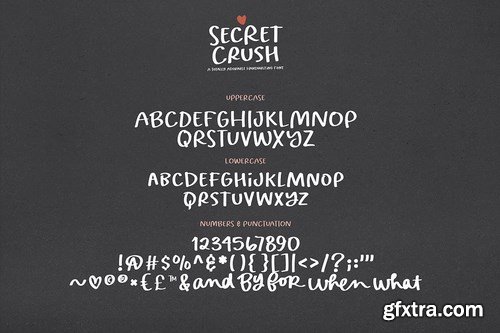 SECRET
CRUSH
A TOTALLY ADORABLE HANDWRITING FONT
UPPERCASE
ABCDEFGHIJKLMNOP
QRSTUVWXYZ
LOWERCASE
ABCDEFGHiJKLMNOP
QRSTUVWXYZ
NUMBERS & PUNCTUATION
1234567890
!@#$%^&*(){}[]|<>/?;:'"
~♡©®*€£™&and By for when what
gfxtra.com